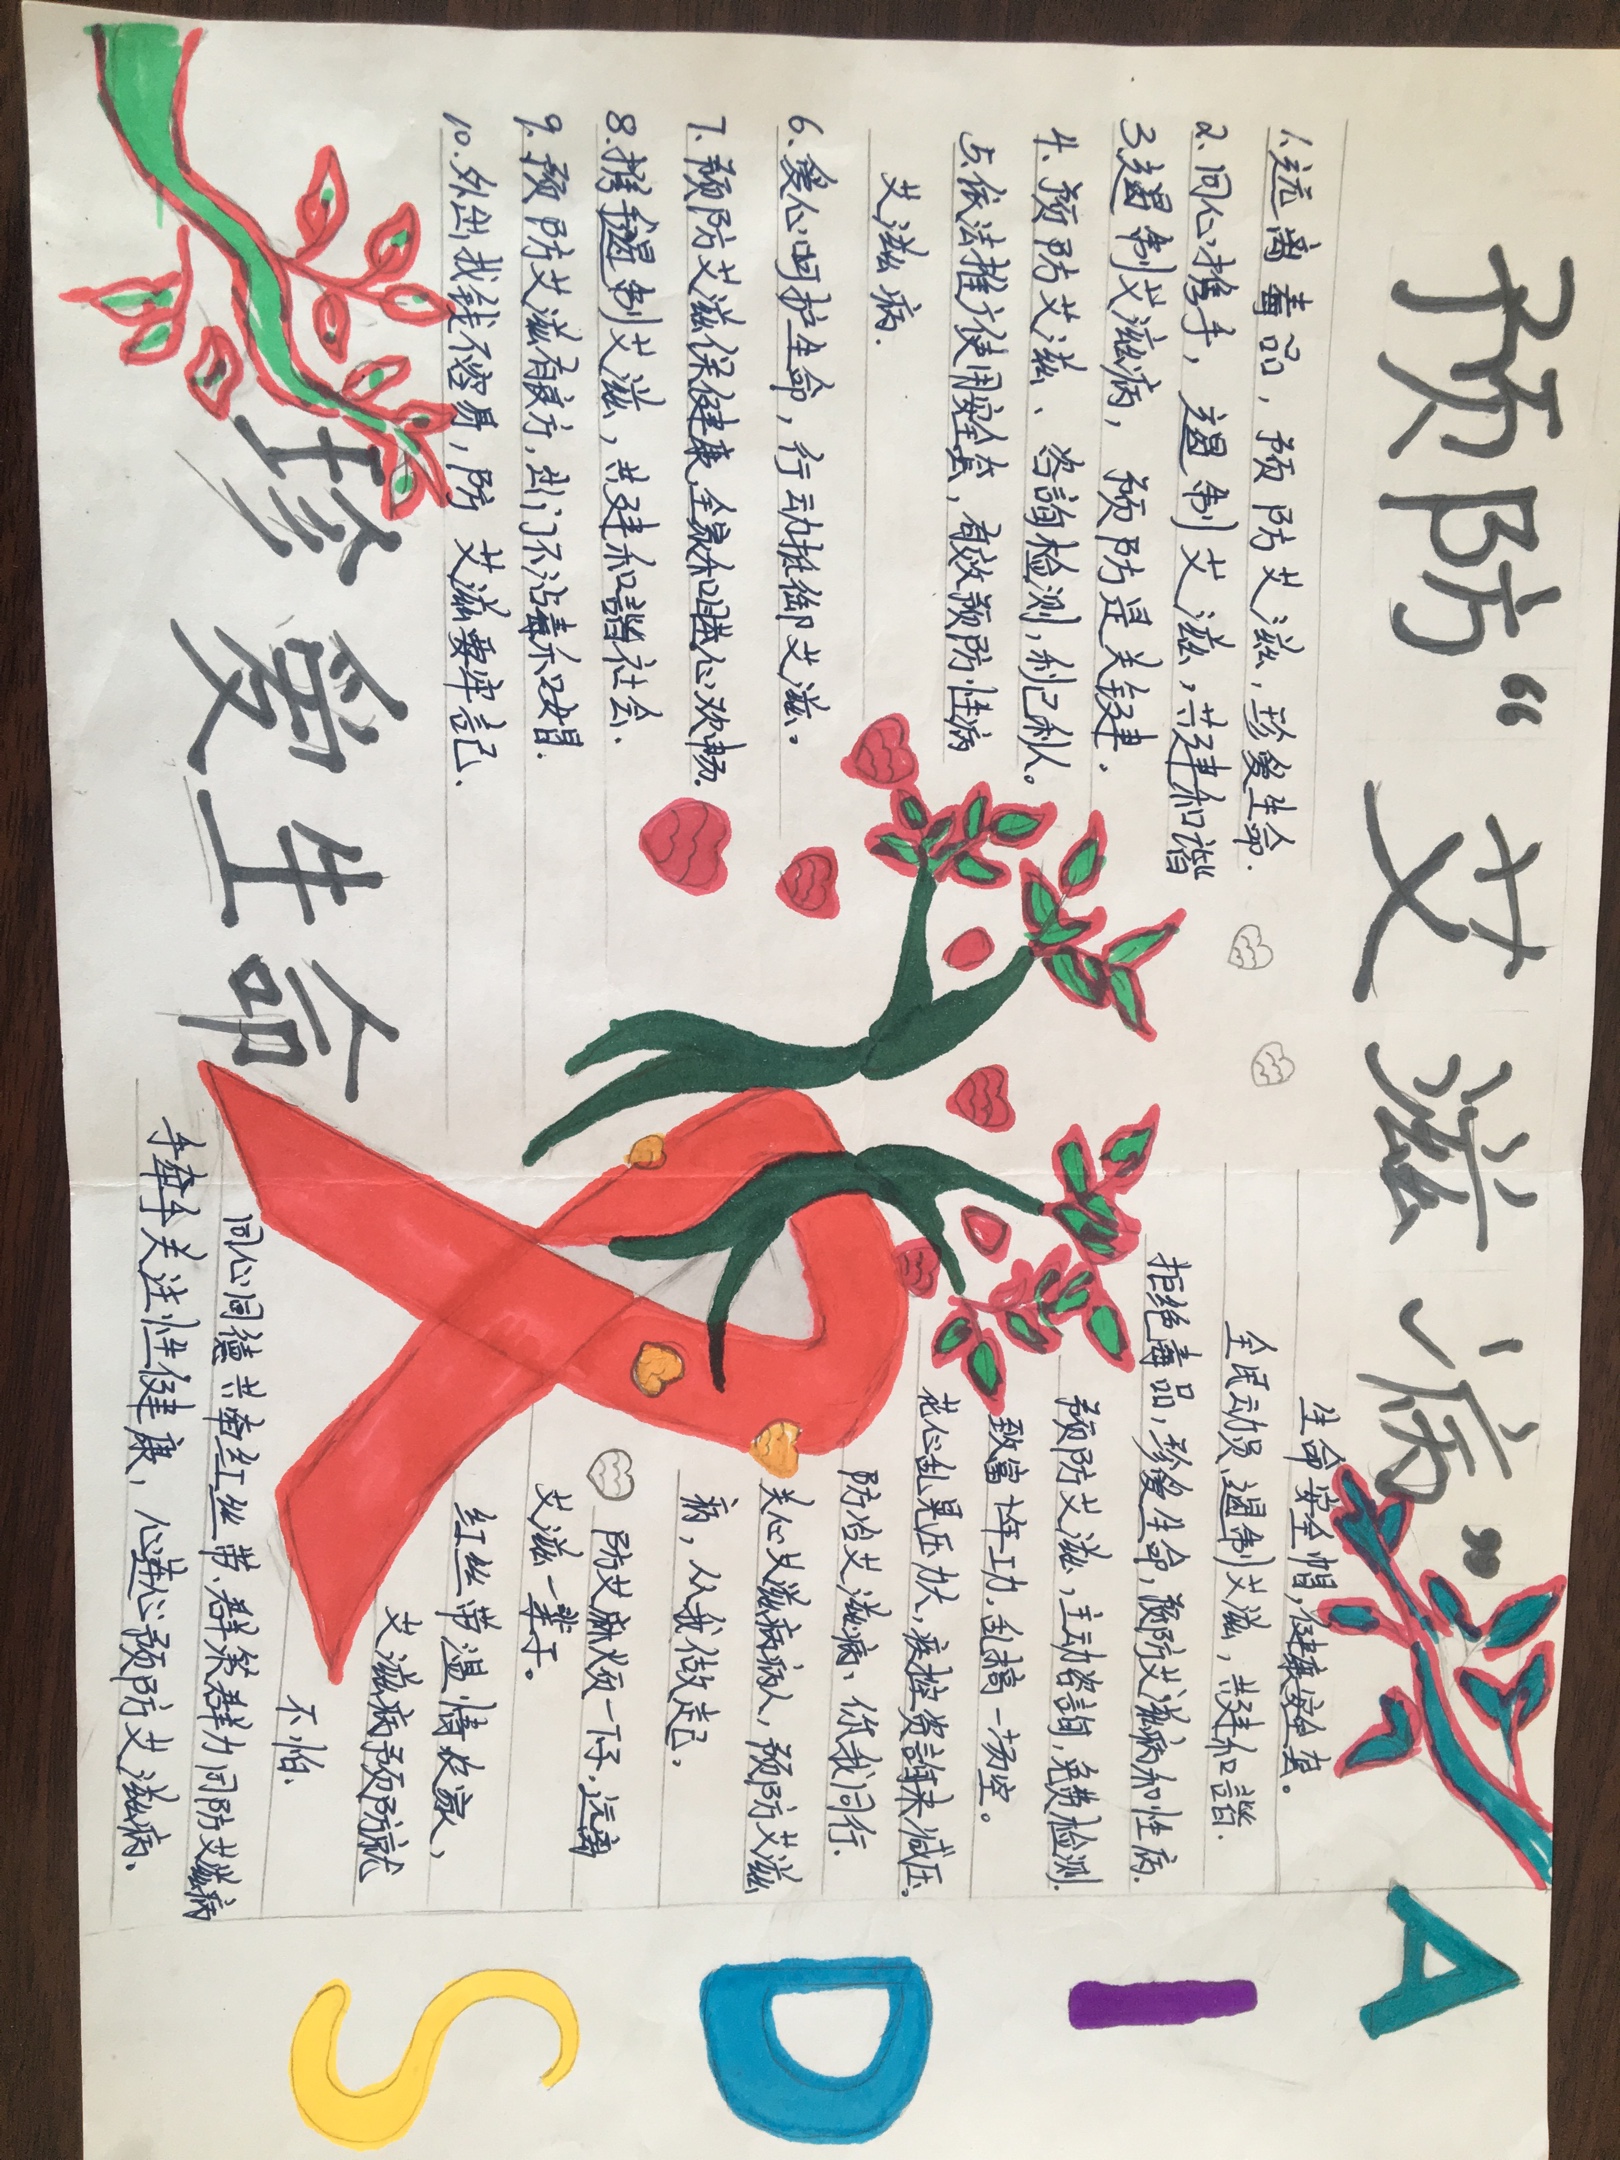 预防“艾滋病”
1.远离毒品，预防艾滋，珍爱生命.
2.同心携手，遏制艾滋，共建和谐
3.遏制艾滋病，预防是关键.
4.预防艾滋、咨詢检测,利己利人。
5.依法推广使用安全套，有效预防性病
艾滋病.
6.爱心呵护生命，行动抵御艾滋。
7.预防艾滋保健康,全家和睦心欢畅.
8.携手遏制艾滋，共建和諧社会.
9.预防艾滋有良方,出门不沾毒和娼.
10.外出找钱不容易，防艾滋要牢記.
珍爱生命
生命安全帽,健康安全套。
全民动员,遏制艾滋，共建和諧.
拒绝毒品,珍爱生命,预防艾滋病和性病.
预防艾滋,主动咨詢,免费检测.
致富十年工力,乱搞一场空。
花心乱果压力大,疾控资詢来减压。
防治艾滋病、你我同行.
关心艾滋病病人,预防艾滋
病，从我做起.
防艾麻烦一下子,远离
艾滋一辈子。
红丝带温情我家，
艾滋病预防就
不怕.
同心同德共牵红丝带.群策群力同防艾滋病
手牵手关注性健康，心连心预防艾滋病.
A
I
D
S